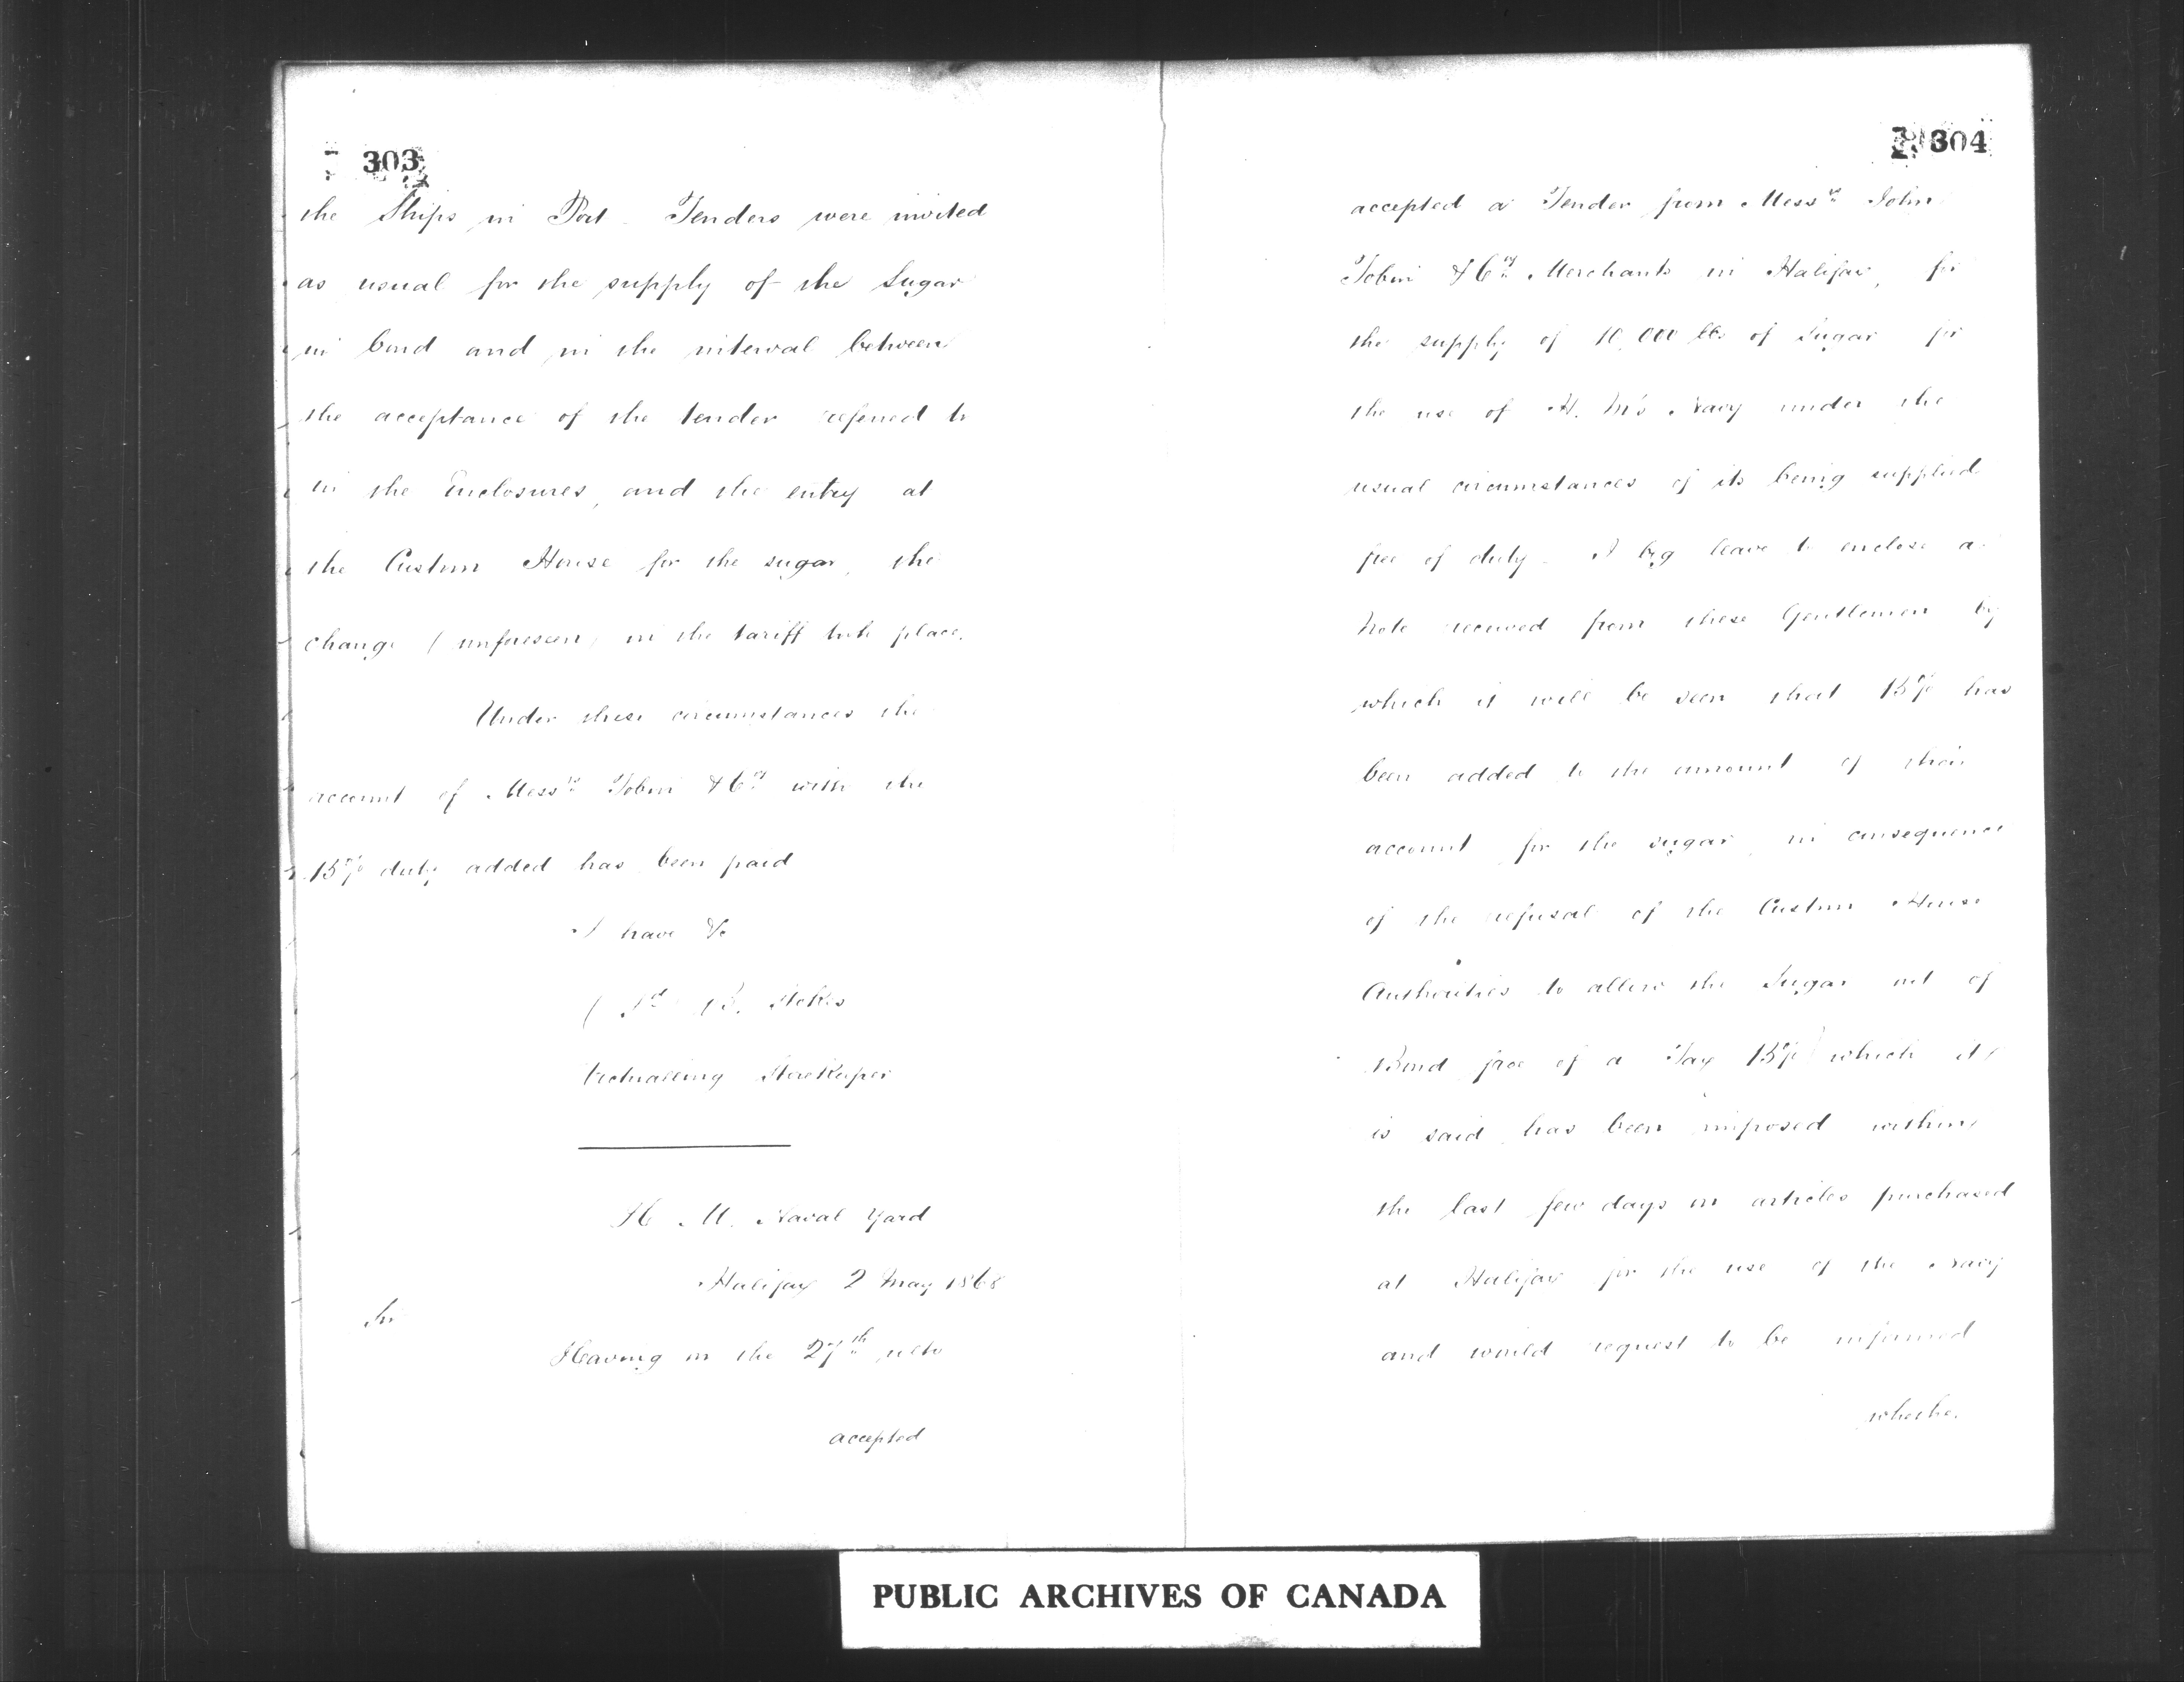 303
the Ships in Port - Tenders were invited
as usual for the supply of the Sugar
in bond and in the interval between
the acceptance of the tender referred to
in the Enclosures, and the entry at
the Custom House for the sugar, the
change (unforeseen) in the tariff took place.
Under these circumstances the
account of Messrs Tobin & Co with the
15% duty added has been paid
I have &c
(Sd) B. Stokes
Victualling Storekeeper
H. M. Naval Yard
Halifax 2 May 1868
Sir
Having on the 27th ulto
accepted
304
accepted a Tender from Messrs John
Tobin & Co Merchants in Halifax, for
the supply of 10,000 lbs of Sugar for
the use of H. M's Navy under the
usual circumstances of its being supplied
free of duty - I beg leave to enclose a
Note received from these Gentlemen by
which it will be seen that 15% has
been added to the amount of their
account for the sugar, in consequence
of the refusal of the Custom House
Authorities to allow the Sugar out of
Bond free of a Tax 15% which it
is said has been imposed within
the last few days on articles purchased
at Halifax for the use of the Navy
and would request to be informed
whether
PUBLIC ARCHIVES OF CANADA